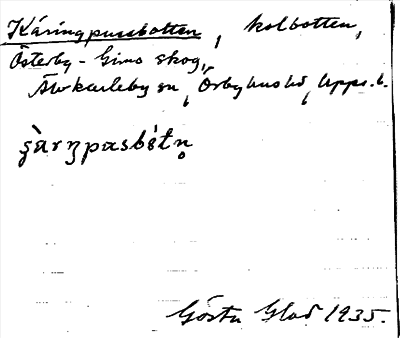 Käringpussbotten, kolbotten,
Österby-Gimo skog,
Älvkarleby sn, Örbyhus hd, Upps. l.
ʂὰrŋpasbétn̥
Gösta Glad 1935.